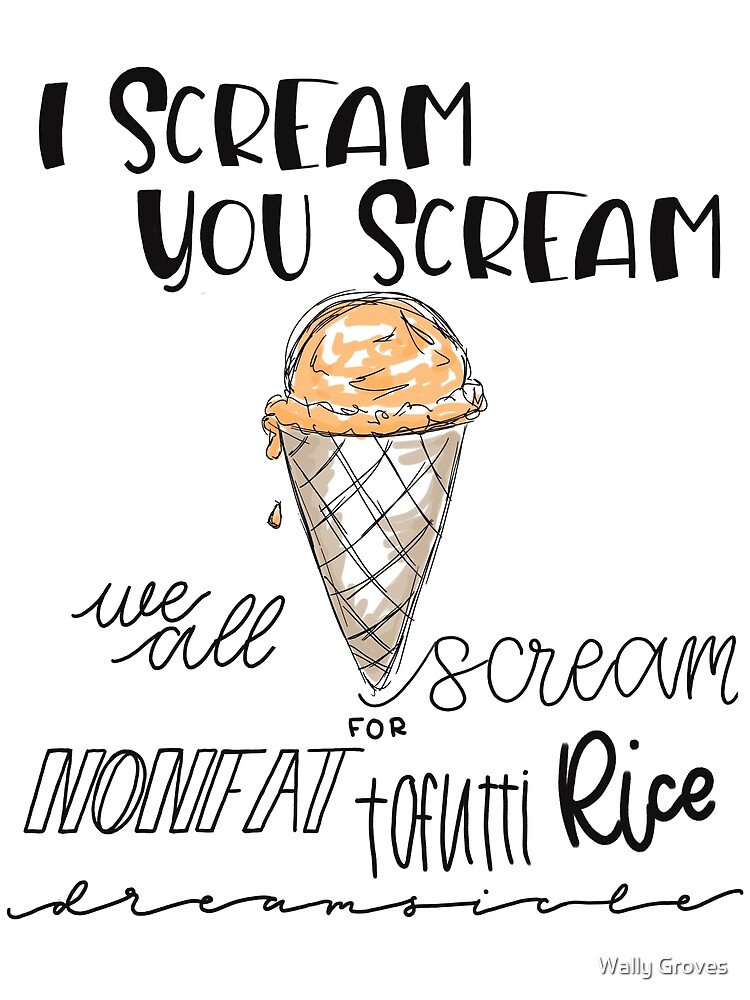 I SCREAM
YOU SCREAM
we
all
scream
FOR
NONFAT tofutti Rice
dreamsicle
Wally Groves